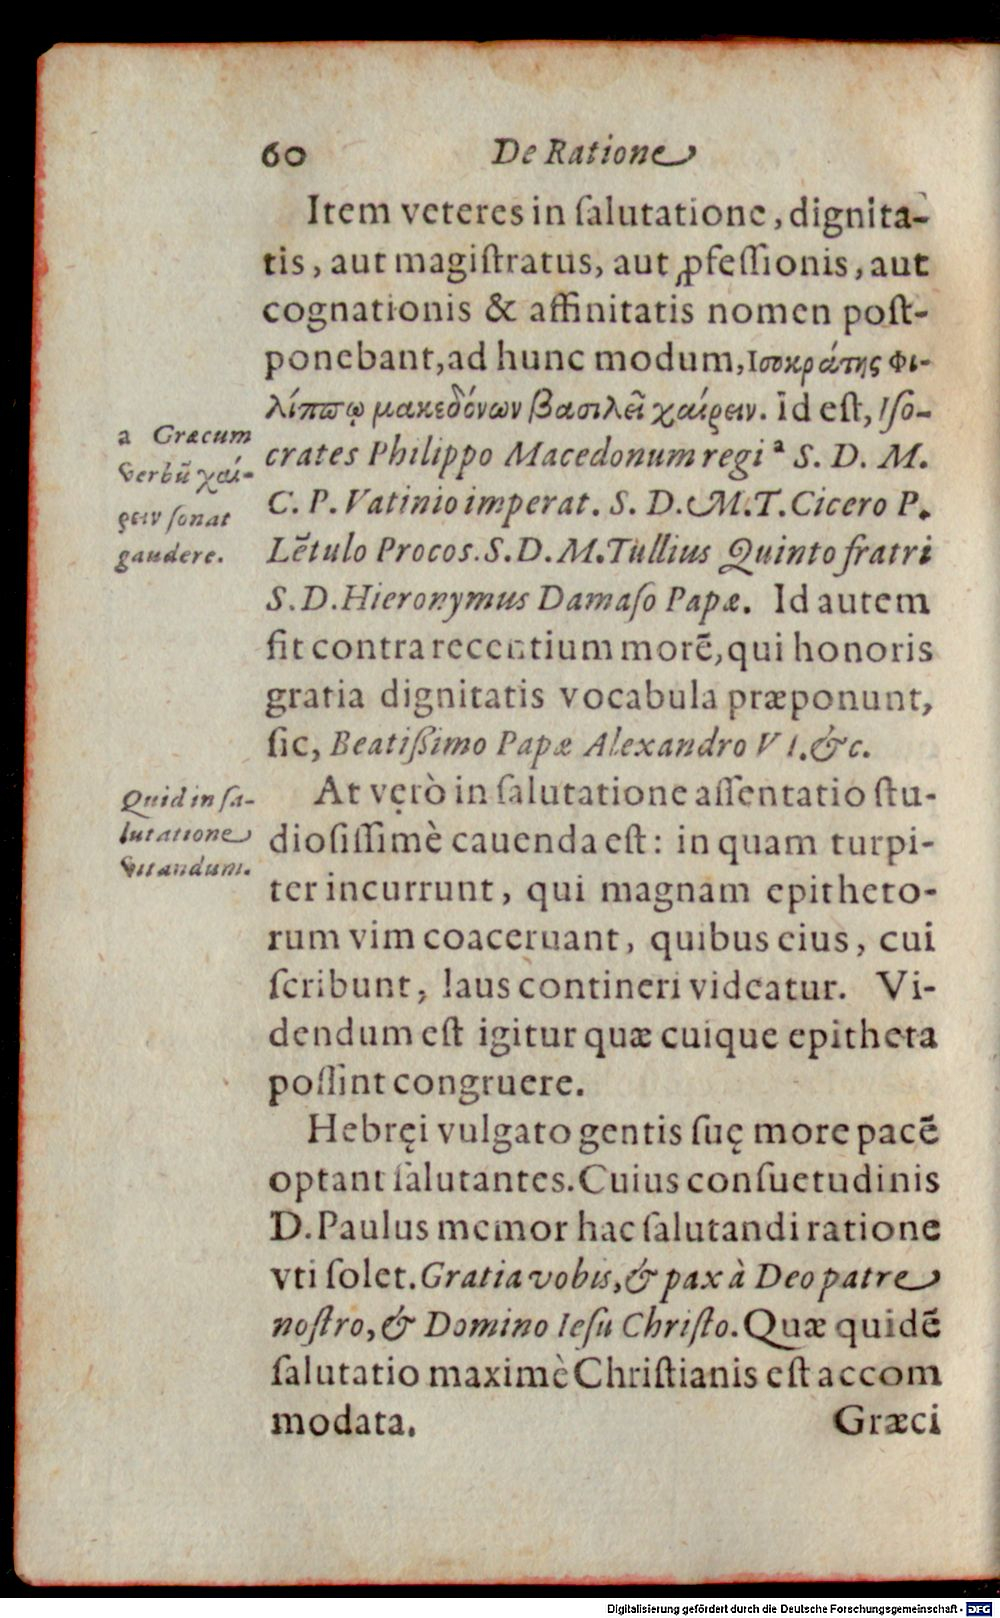 60 De Ratione
Item veteres in ſalutatione, dignita-
tis, aut magiſtratus, aut ꝓfeſſionis, aut
cognationis & affinitatis nomen poſt-
ponebant, ad hunc modum, Ισοκράτης Φι-
λίππῳ μακεδόνων βασιλεῖ χαίρειν. id eſt, Iſo-
crates Philippo Macedonum regi ª S. D. M.
C. P. Vatinio imperat. S. D. M. T. Cicero P.
Lẽtulo Procos. S. D. M. Tullius Quinto fratri
S. D. Hieronymus Damaſo Papæ. Id autem
fit contra recentium morẽ, qui honoris
gratia dignitatis vocabula præponunt,
ſic, Beatißimo Papæ Alexandro VI. &c.
a Græcum
verbũ χαί-
ρειν ſonat
gaudere.
At verò in ſalutatione aſſentatio ſtu-
dioſiſſimè cauenda eſt: in quam turpi-
ter incurrunt, qui magnam epitheto-
rum vim coaceruant, quibus eius, cui
ſcribunt, laus contineri videatur. Vi-
dendum eſt igitur quæ cuique epitheta
poſſint congruere.
Quid in ſa-
lutatione
vitandum.
Hebręi vulgato gentis ſuę more pacẽ
optant ſalutantes. Cuius conſuetudinis
D. Paulus memor hac ſalutandi ratione
vti ſolet. Gratia vobis, & pax à Deo patre
noſtro, & Domino Ieſu Chriſto. Quæ quidẽ
ſalutatio maximè Chriſtianis eſt accom
modata. Græci
Digitalisierung gefördert durch die Deutsche Forschungsgemeinschaft - DFG